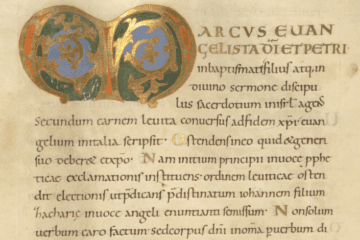 MARCUS EUAN
GELISTA DĪ ET PETRI
inbaptismatefilius atq. in
diuino sermone discipu
lus sacerdotium inisrl agens
Secundum carnem leuita conuersus adfidem xp̄i euan
gelium initalia scripsit Ostendensineo quid&generi
suo deber& &xp̄o. Nam initium principii inuoce pph&
ticae exclamationis instituens ordinem leuiticae osten
dit electionis utp̄dicans p̄distinatum iohannem filium
zachariae inuoce angeli enuntiantis emissum Nonsolum
uerbum caro factum sedcorpus dn̄i inomnia puerbum di